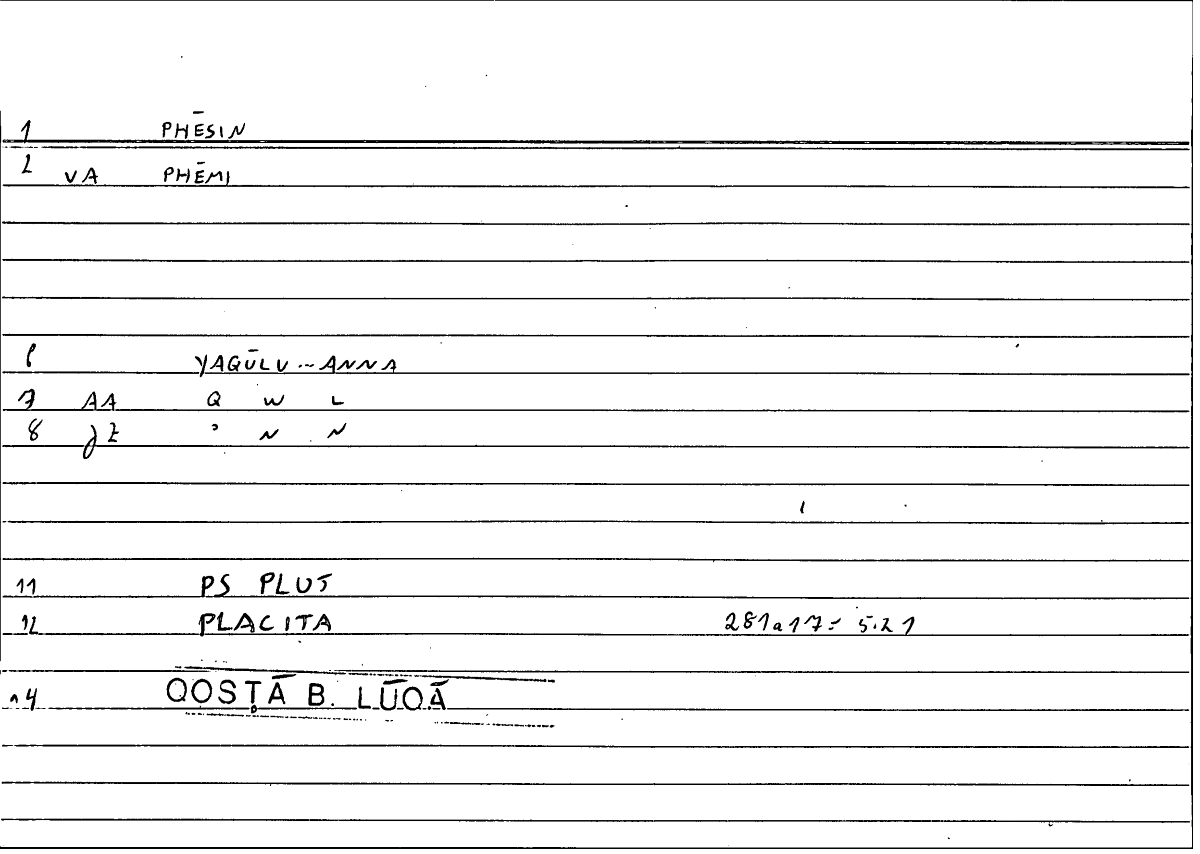 1 PHĒSIN
2 VA PHĒMI
6 YAQŪLU ANNA
7 AA Q W L
8 JZ ʾ N N
11 PS PLUT
12 PLACITA 281a17= 5.21
14 QOSṬĀ B. LŪQĀ